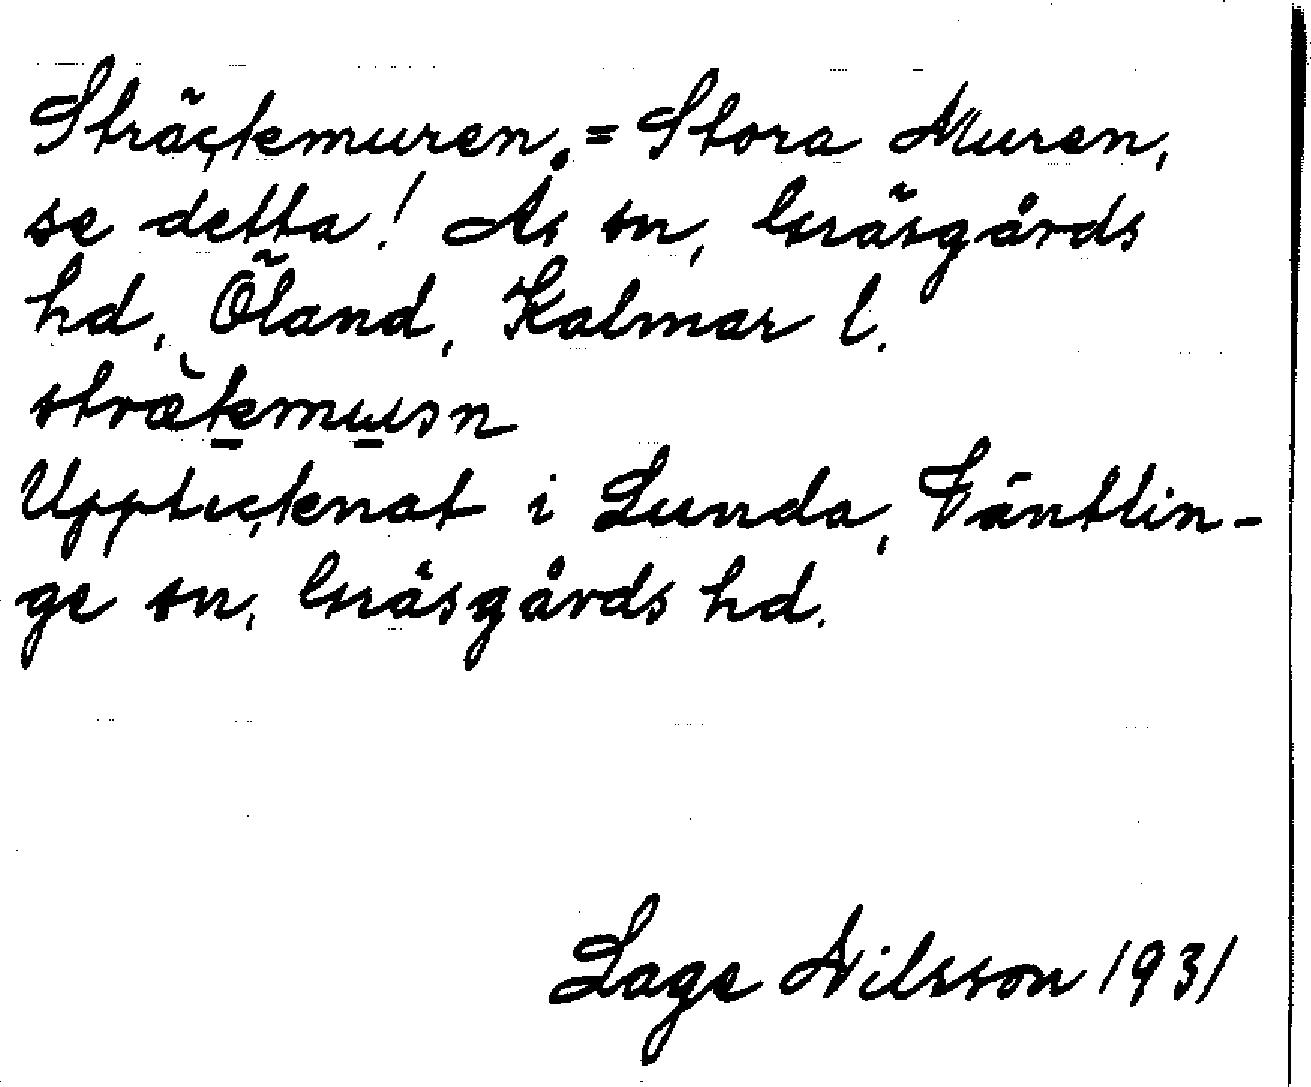 Sträckemuren, = Stora Muren,
se detta! Ås sn, Gräsgårds
hd, Öland, Kalmar l.
Upptecknat i Lunda, Ventlin-
ge sn, Gräsgårds hd.
Lage Nilsson 1931